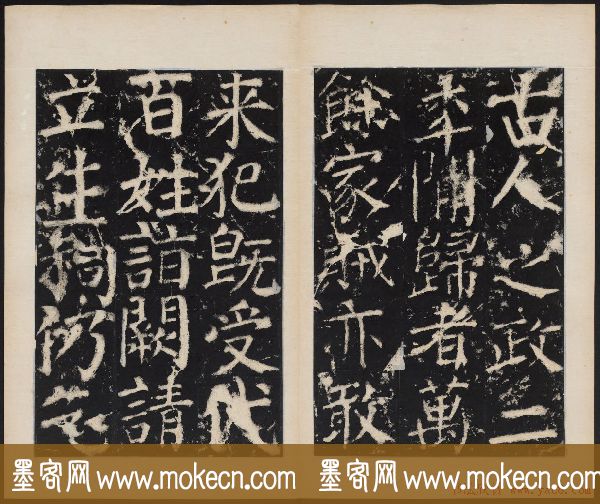 古人之政二
年間歸者萬
餘家賊亦敢
来犯既受代
百姓詣闕請
立生祠仍乞
墨客网 www.mokecn.com
墨客网 www.mokecn.com